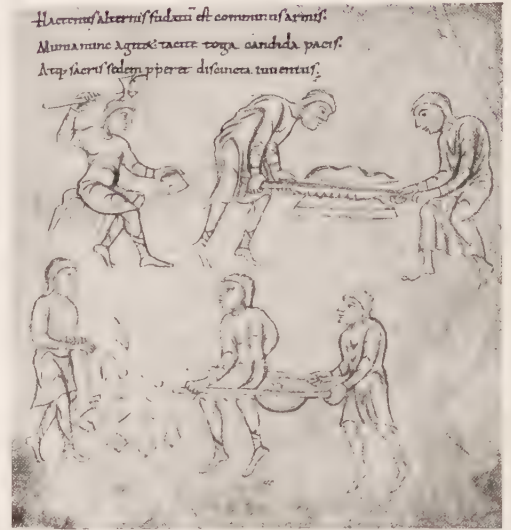 Hactenus alternis sudatū est comminus armis.
Munia nunc agitet tacite toga candida pacis.
Atq; sacris sedem pperet discincta iuuentus.